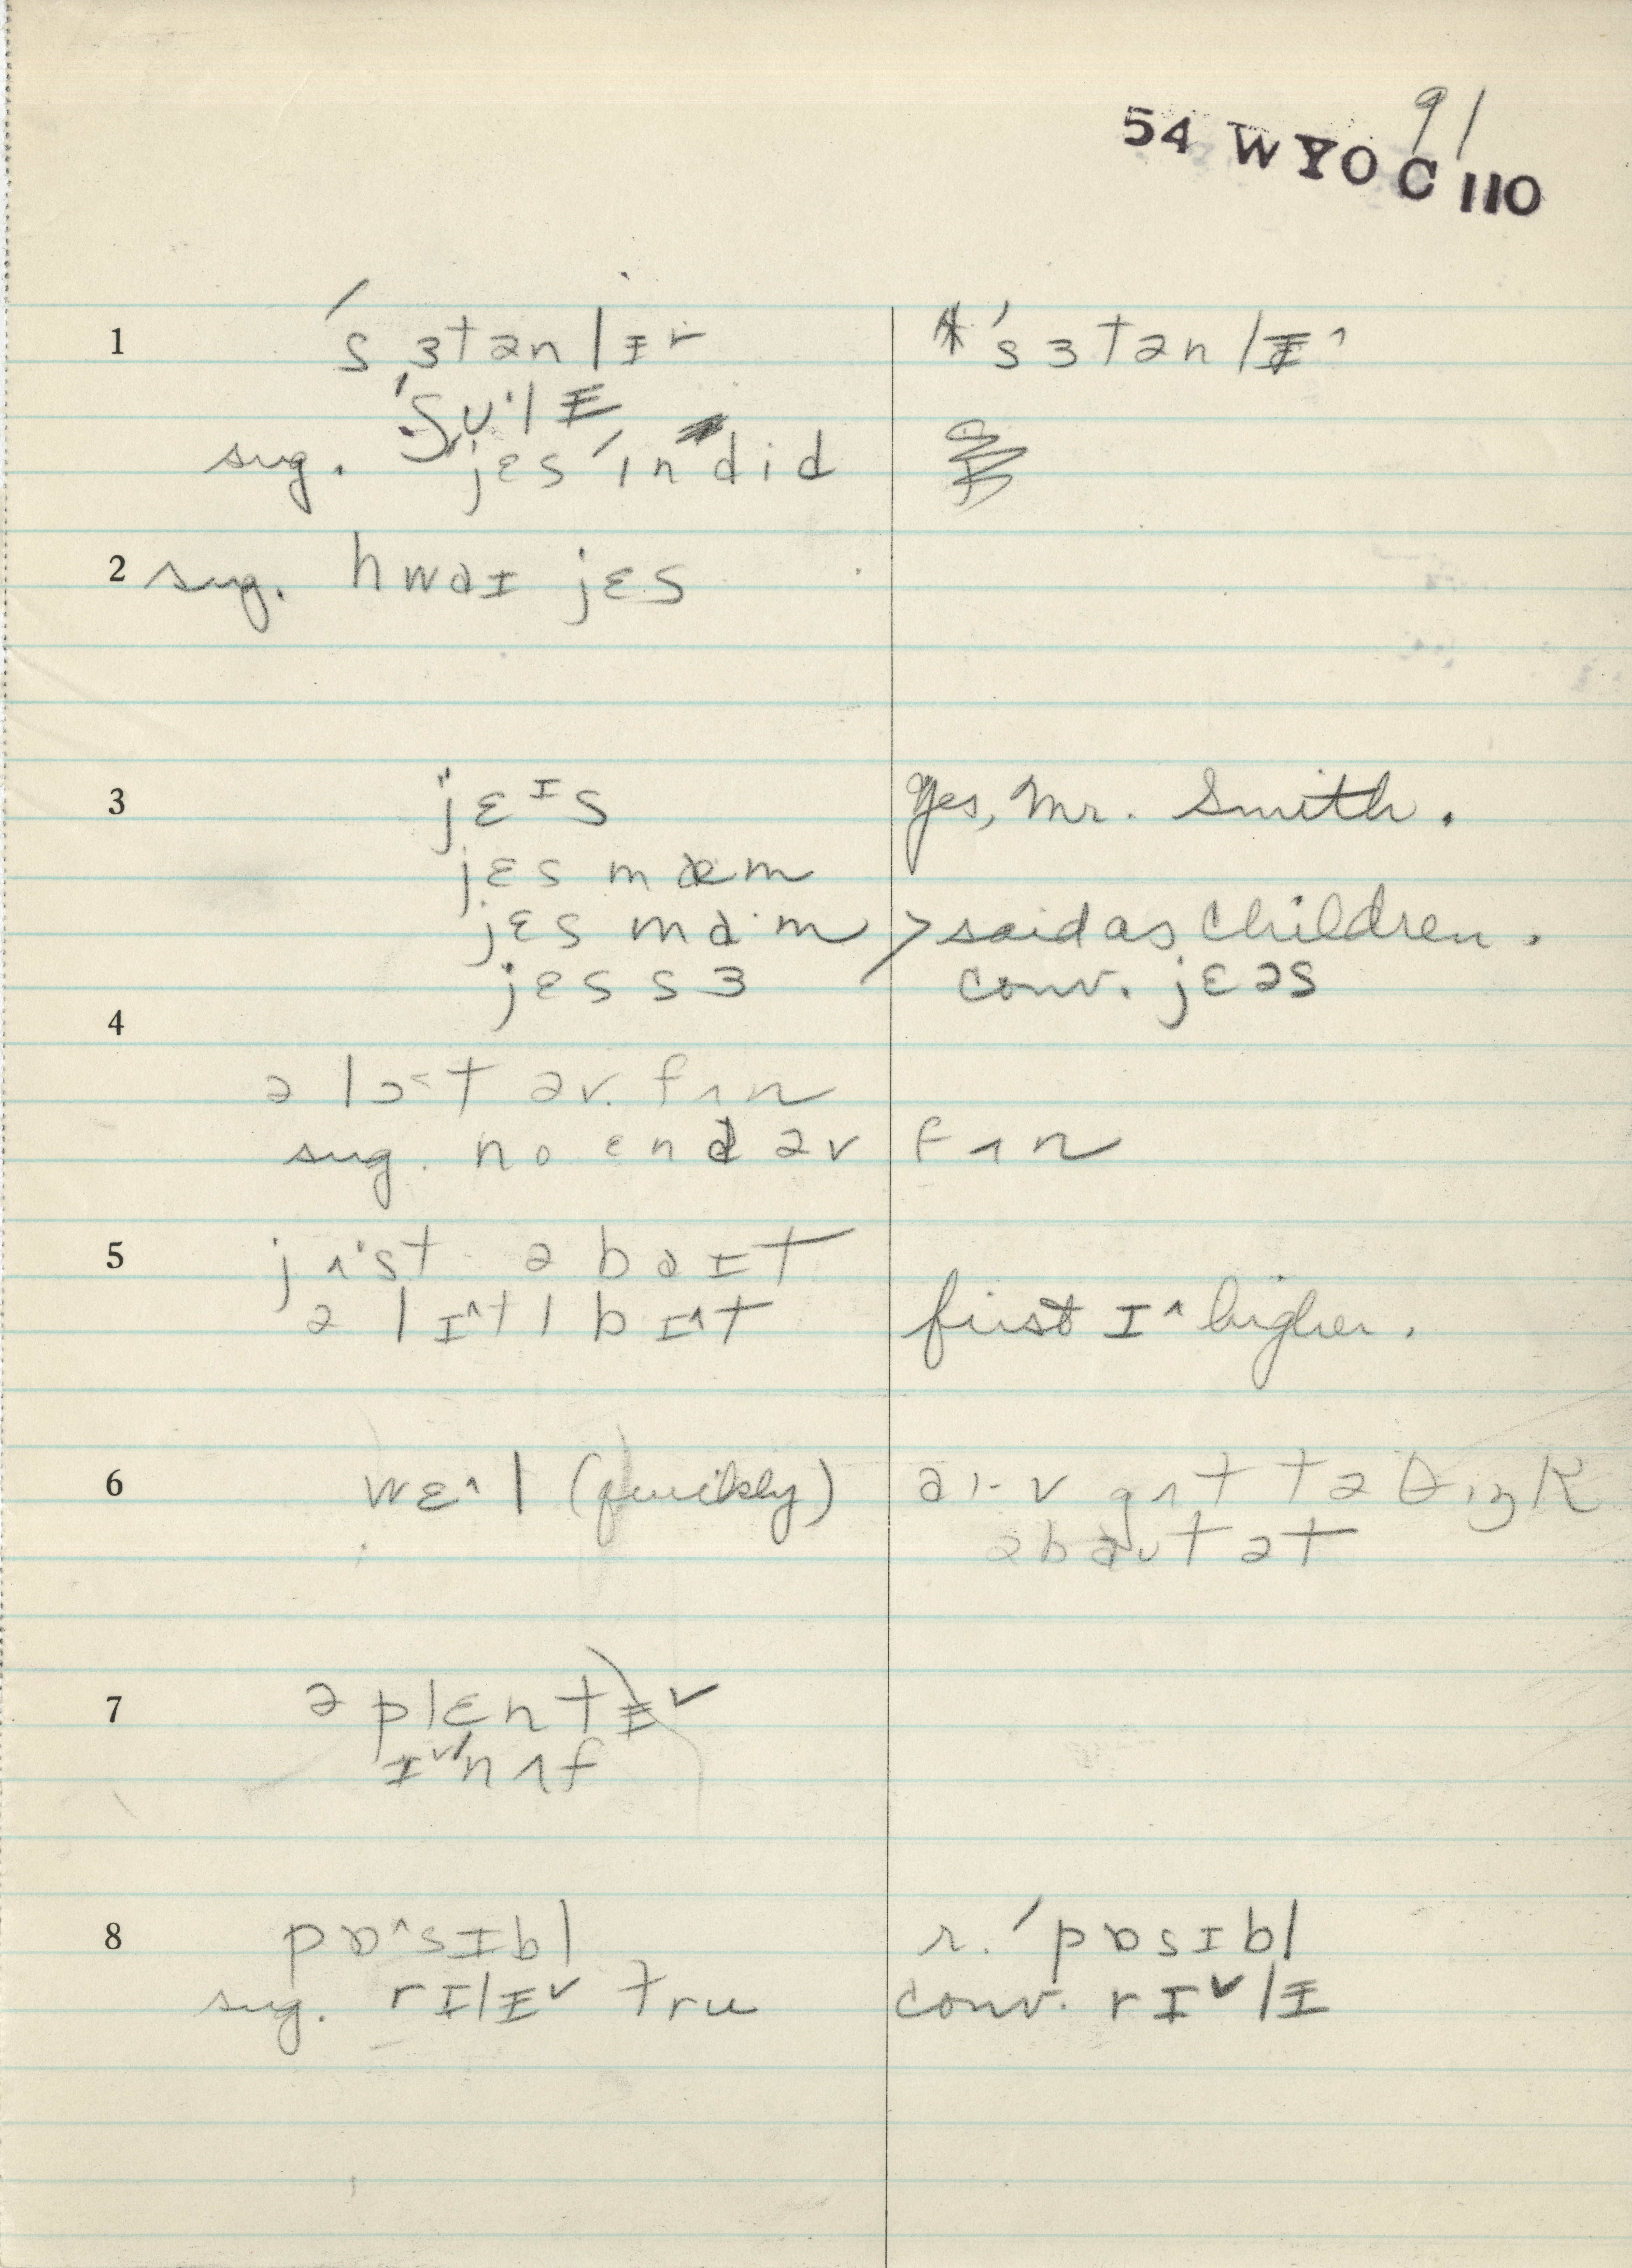 91
54 WYO C 110
1 ˈsɜtənlɪ˅ ˈsɜtənlᵻ˄
ˈʃʊ˙lᵻ
sug. jɛs ˈɪndid
2 sug. hwaɪ jɛs
3 jɛᶦs Yes, Mr. Smith.
jɛs mæm
jɛs ma·m > said as children.
jɛs sɜ conv. jɛəs
4
ə lɔ˂t əv fʌn
sug. no ɛnd əv fʌn
5 jʌ˙st ə baɪt
ə lɪ˄tl bɪ˄t first ɪ˄ higher.
6 wɛ˄l (quickly) aɪv gʌt tə θɪŋk
əbaʊt ət
7 ə plɛntᵻ˅
ɪ˅ˈnʌf
8 pɒ˄sɪbl r. ˈpɒsɪbl
sug. rɪlᵻ˅ tru conv. rɪ˅lᵻ